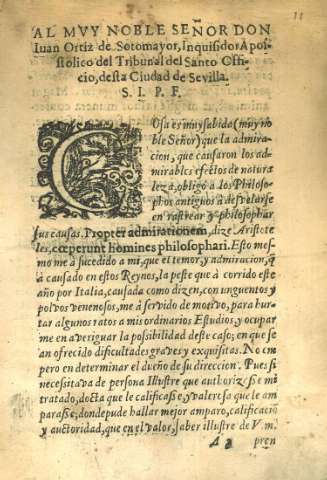 AL MVY NOBLE SEÑOR DON
Iuan Ortiz de Sotomayor, Inquisidor Apos
stolico del Tribunal del Santo Offi
cio, desta Ciudad de Sevilla.
S. I. P. F.
COsa es muy sabida (muy no
ble Señor) que la admira-
cion, que causaron los ad-
mirables efectos de natura
leza, obligò a los Philoso-
phos antiguos a desvelarse
en rastrear y philosophar
sus causas. Propter admirationem, dize Aristote
les, cœperunt homines philosophari. Esto mes-
mo me à sucedido a mi, que el temor, y admiracion, q̃
à causado en estos Reynos, la peste que à corrido este
año por Italia, causada como dizen, con unguentos y
polvos venenosos, me à servido de motivo, para hur-
tar algunos ratos a mis ordinarios Estudios, y ocupar
me en averiguar la possibilidad deste caso; en que se
an ofrecido dificultades graves y exquisitas. No em
pero en determinar el dueño de su direccion. Pues si
necesitava de persona Illustre que authorizasse mi
tratado, docta que le calificasse, y valerosa que le am
parasse; donde pude hallar mejor amparo, calificaciõ
y auctoridad, que en el valor, saber illustre de V. m.
A 2 pren